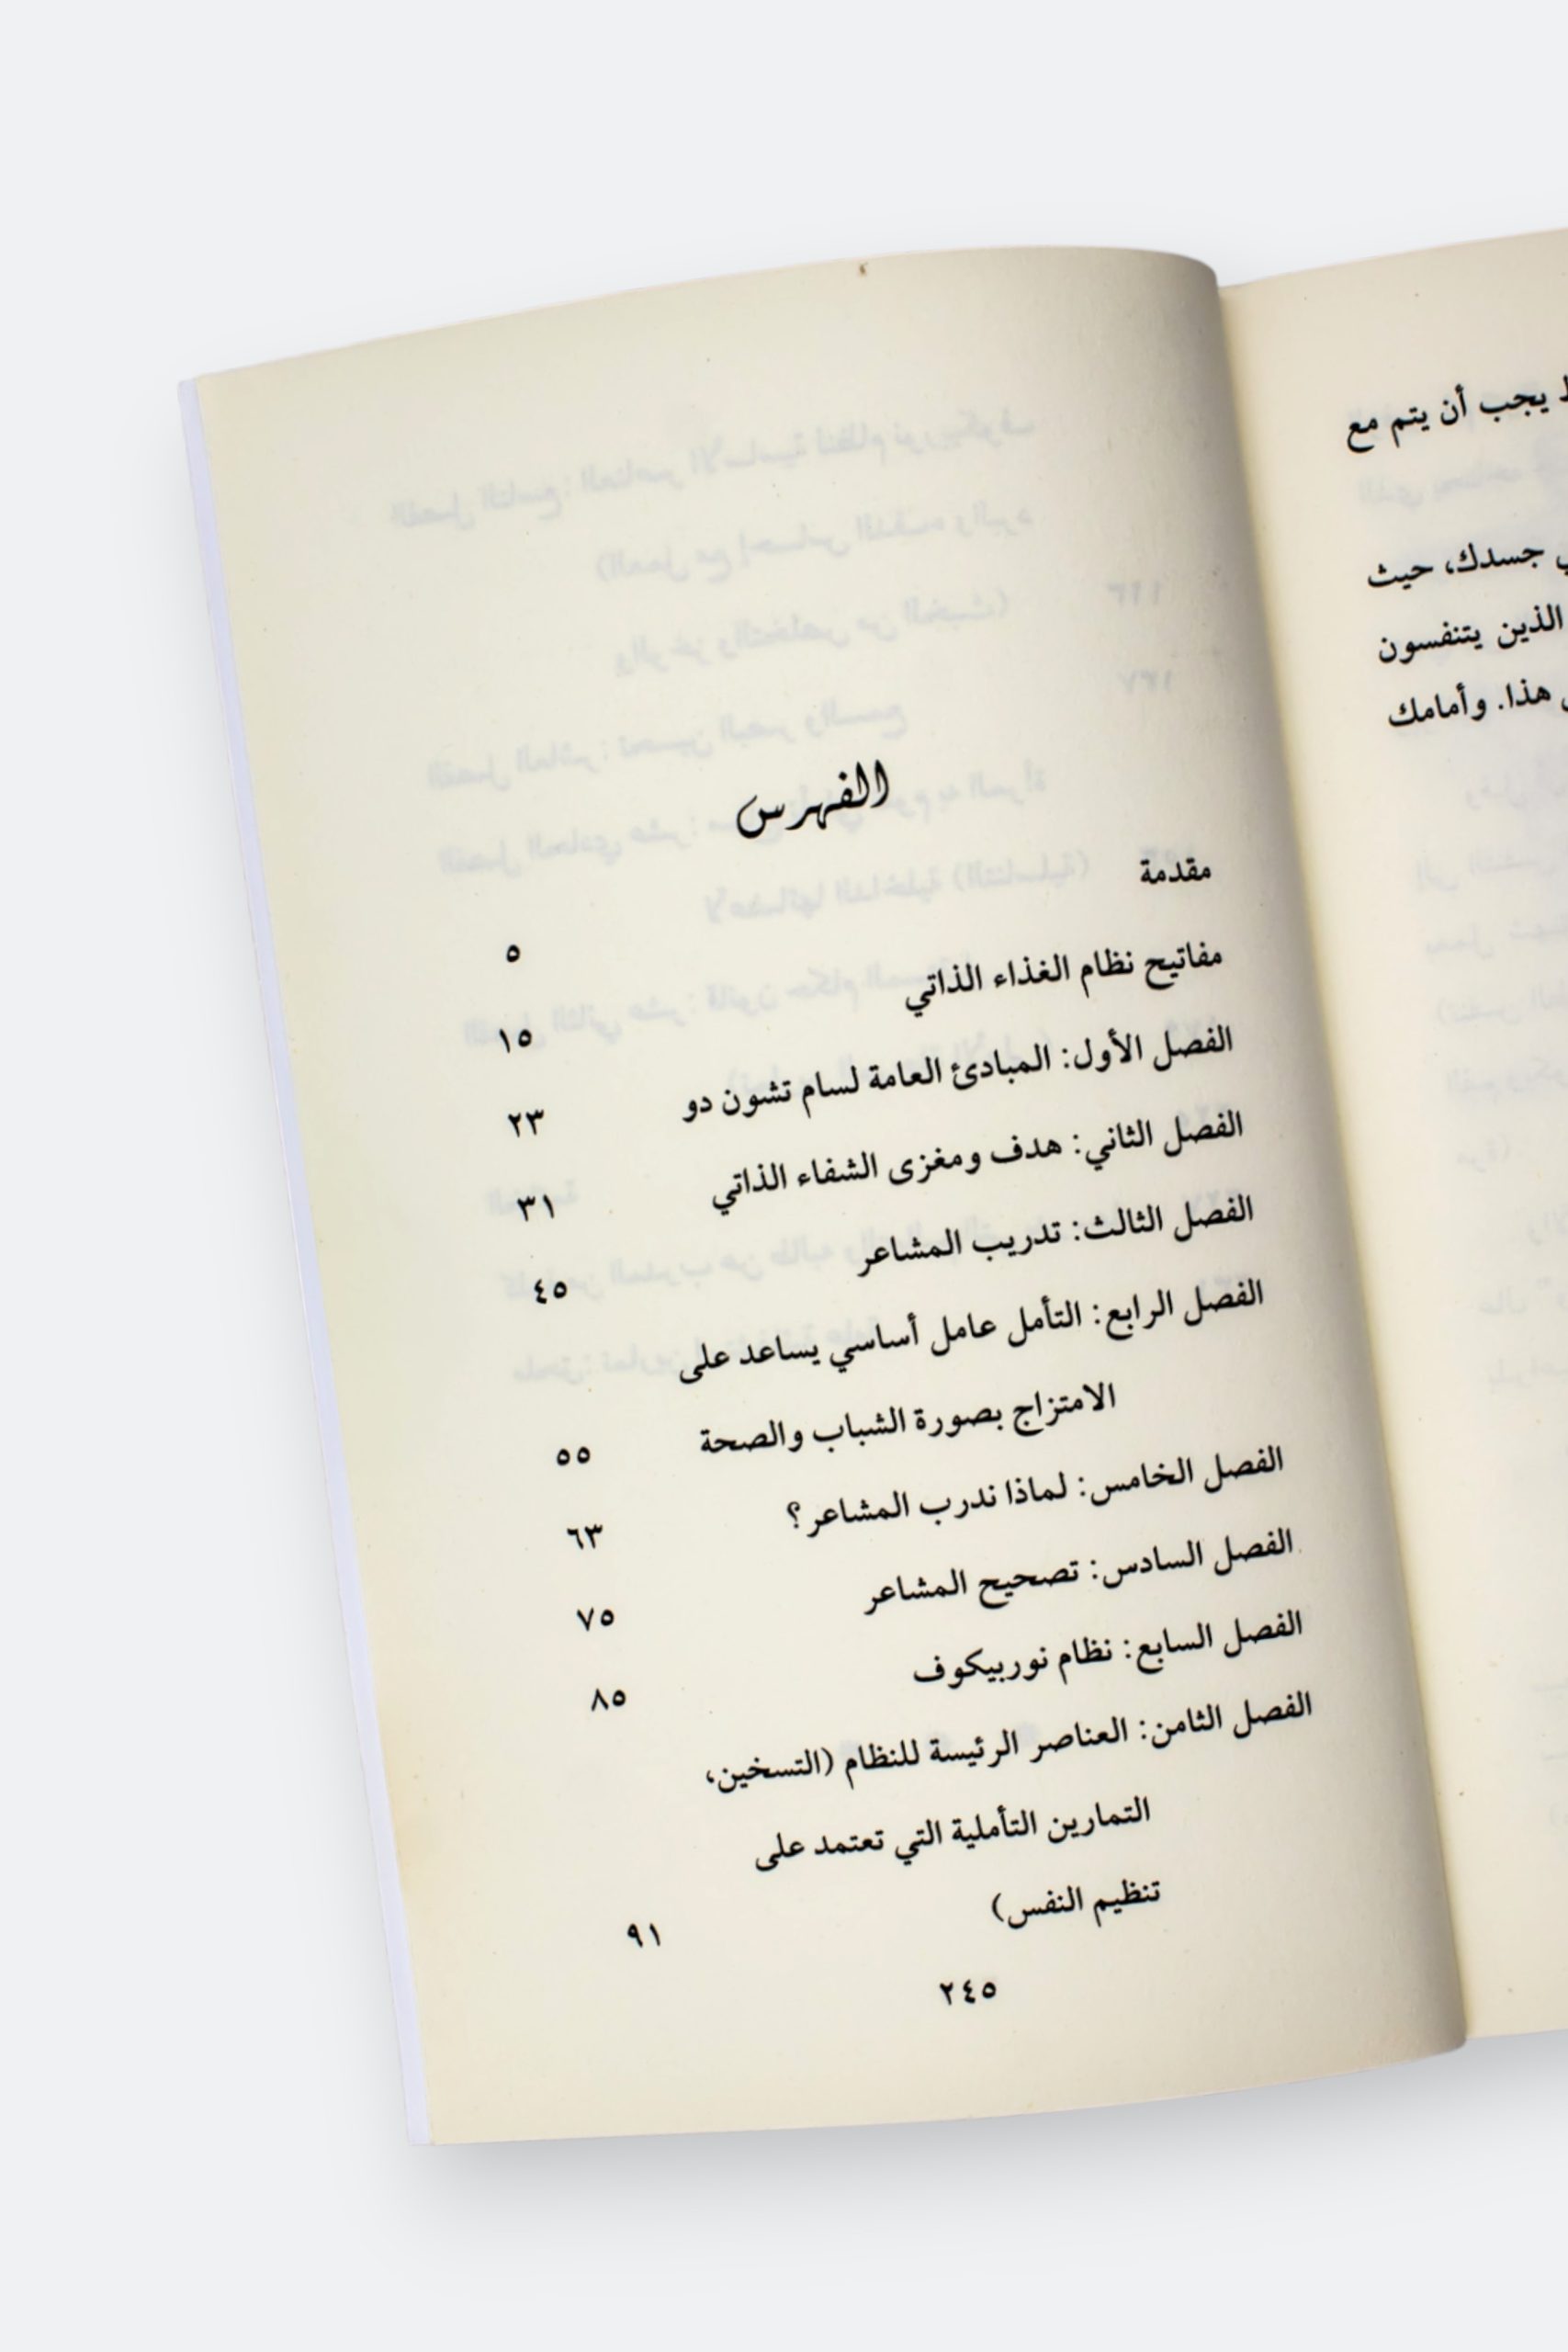 يجب أن يتم مع
جسدك، حيث
الذين يتنفسون
هذا. وأمامك
الفهرس
مقدمة ٥
مفاتيح نظام الغذاء الذاتي ١٥
الفصل الأول: المبادئ العامة لسام تشون دو ٢٣
الفصل الثاني: هدف ومغزى الشفاء الذاتي ٣١
الفصل الثالث: تدريب المشاعر ٤٥
الفصل الرابع: التأمل عامل أساسي يساعد على
الامتزاج بصورة الشباب والصحة ٥٥
الفصل الخامس: لماذا ندرب المشاعر؟ ٦٣
الفصل السادس: تصحيح المشاعر ٧٥
الفصل السابع: نظام نوربيكوف ٨٥
الفصل الثامن: العناصر الرئيسة للنظام (التسخين،
التمارين التأملية التي تعتمد على
تنظيم النفس) ٩١
٢٤٥